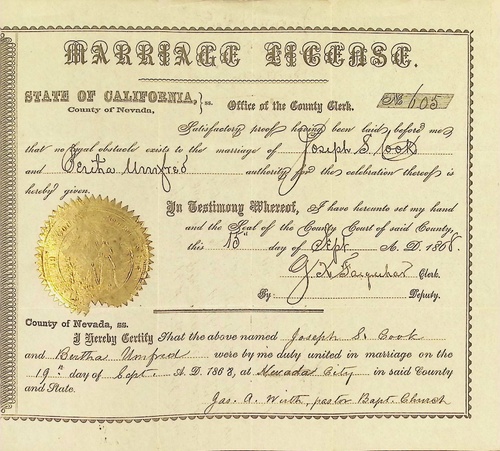 MARRIAGE LICENSE.
STATE OF CALIFORNIA, } ss. Office of the County Clerk. No 605
County of Nevada,
Satisfactory proof having been laid before me
that no legal obstacle exists to the marriage of Joseph S. Cook
and Bertha Umfred authority for the celebration thereof is
hereby given.
In Testimony Whereof, I have hereunto set my hand
and the Seal of the County Court of said County,
this 15th day of Sept A. D. 1868.
Farquhar Clerk.
By: Deputy.
County of Nevada, ss.
I Hereby Certify That the above named Joseph S. Cook
and Bertha Umfred were by me duly united in marriage on the
19th day of Sept. A. D. 1868, at Nevada City in said County
and State.
Jas. A. Wirth, pastor Bapt. Church